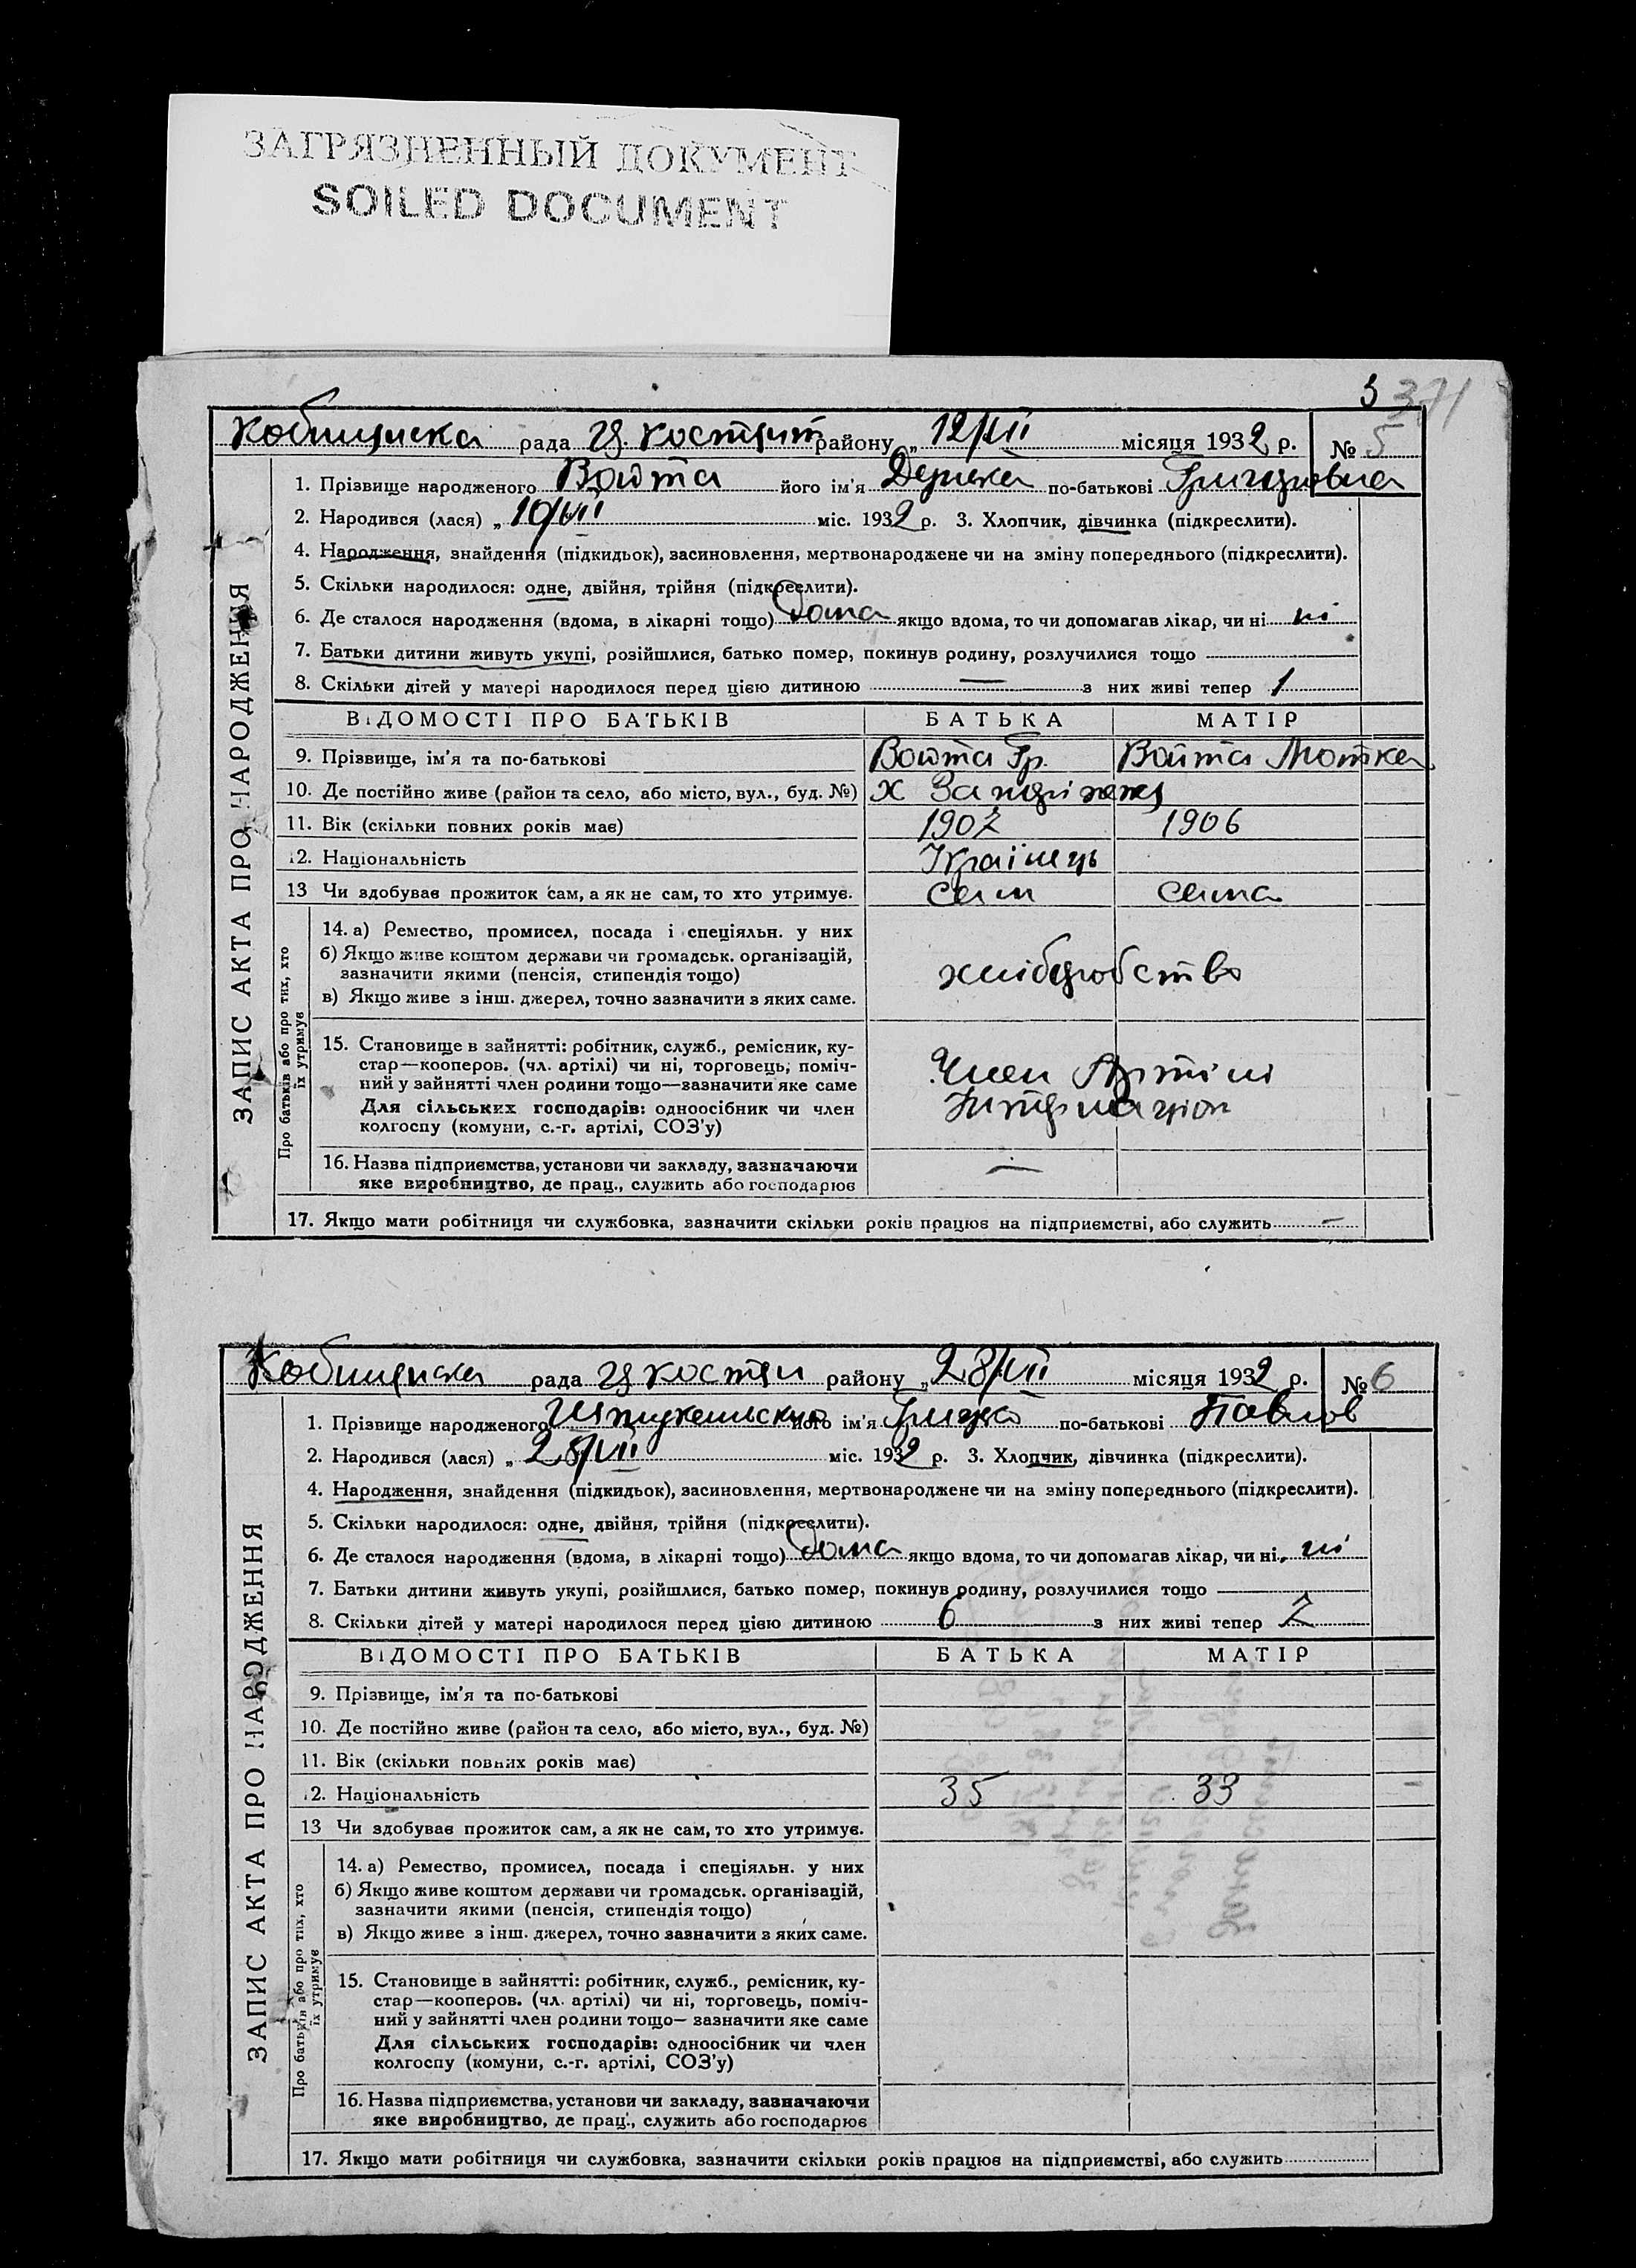 ЗАГРЯЗНЕННЫЙ ДОКУМЕНТ
SOILED DOCUMENT
3 371
рада району „ 12/VII місяця 1932 р. № 5
1. Прізвище народженого Войта його ім'я по-батькові Григоровна
2. Народився (лася) „ 10/VII міс. 1932 р. 3. Хлопчик, дівчинка (підкреслити).
4. Народження, знайдення (підкидьок), засиновлення, мертвонароджене чи на зміну попереднього (підкреслити).
5. Скільки народилося: одне, двійня, трійня (підкреслити).
6. Де сталося народження (вдома, в лікарні тощо) дома якщо вдома, то чи допомагав лікар, чи ні ні
7. Батьки дитини живуть укупі, розійшлися, батько помер, покинув родину, розлучилися тощо
8. Скільки дітей у матері народилося перед цією дитиною — з них живі тепер 1
ВІДОМОСТІ ПРО БАТЬКІВ БАТЬКА МАТІР
9. Прізвище, ім'я та по-батькові Войта Гр. Войта Мотжа
10. Де постійно живе (район та село, або місто, вул., буд. №) х
11. Вік (скільки повних років має) 1907 1906
12. Національність Українець
13 Чи здобував прожиток сам, а як не сам, то хто утримує. сам сама
14. а) Ремество, промисел, посада і спеціяльн. у них
б) Якщо живе коштом держави чи громадськ. організацій,
зазначити якими (пенсія, стипендія тощо)
в) Якщо живе з інш. джерел, точно зазначити з яких саме.
хліборобство
15. Становище в зайнятті: робітник, служб., ремісник, ку-
стар—кооперов. (чл. артілі) чи ні, торговець, поміч-
ний у зайнятті член родини тощо—зазначити яке саме
Для сільських господарів: одноосібник чи член
колгоспу (комуни, с.-г. артілі, СОЗ'у)
Член Артілі
16. Назва підприємства, установи чи закладу, зазначаючи
яке виробництво, де прац., служить або господарює —
17. Якщо мати робітниця чи службовка, зазначити скільки років працює на підприємстві, або служить —
ЗАПИС АКТА ПРО НАРОДЖЕННЯ
Про батьків або про тих, хто
їх утримує
рада району „ 28/VII місяця 1932 р. № 6
1. Прізвище народженого його ім'я по-батькові Павлов
2. Народився (лася) „ 28/VII міс. 1932 р. 3. Хлопчик, дівчинка (підкреслити).
4. Народження, знайдення (підкидьок), засиновлення, мертвонароджене чи на зміну попереднього (підкреслити).
5. Скільки народилося: одне, двійня, трійня (підкреслити).
6. Де сталося народження (вдома, в лікарні тощо) дома якщо вдома, то чи допомагав лікар, чи ні ні
7. Батьки дитини живуть укупі, розійшлися, батько помер, покинув родину, розлучилися тощо
8. Скільки дітей у матері народилося перед цією дитиною 6 з них живі тепер 2
ВІДОМОСТІ ПРО БАТЬКІВ БАТЬКА МАТІР
9. Прізвище, ім'я та по-батькові
10. Де постійно живе (район та село, або місто, вул., буд. №)
11. Вік (скільки повних років має)
12. Національність 35 33
13 Чи здобував прожиток сам, а як не сам, то хто утримує.
14. а) Ремество, промисел, посада і спеціяльн. у них
б) Якщо живе коштом держави чи громадськ. організацій,
зазначити якими (пенсія, стипендія тощо)
в) Якщо живе з інш. джерел, точно зазначити з яких саме.
15. Становище в зайнятті: робітник, служб., ремісник, ку-
стар—кооперов. (чл. артілі) чи ні, торговець, поміч-
ний у зайнятті член родини тощо—зазначити яке саме
Для сільських господарів: одноосібник чи член
колгоспу (комуни, с.-г. артілі, СОЗ'у)
16. Назва підприємства, установи чи закладу, зазначаючи
яке виробництво, де прац., служить або господарює
17. Якщо мати робітниця чи службовка, зазначити скільки років працює на підприємстві, або служить
ЗАПИС АКТА ПРО НАРОДЖЕННЯ
Про батьків або про тих, хто
їх утримує